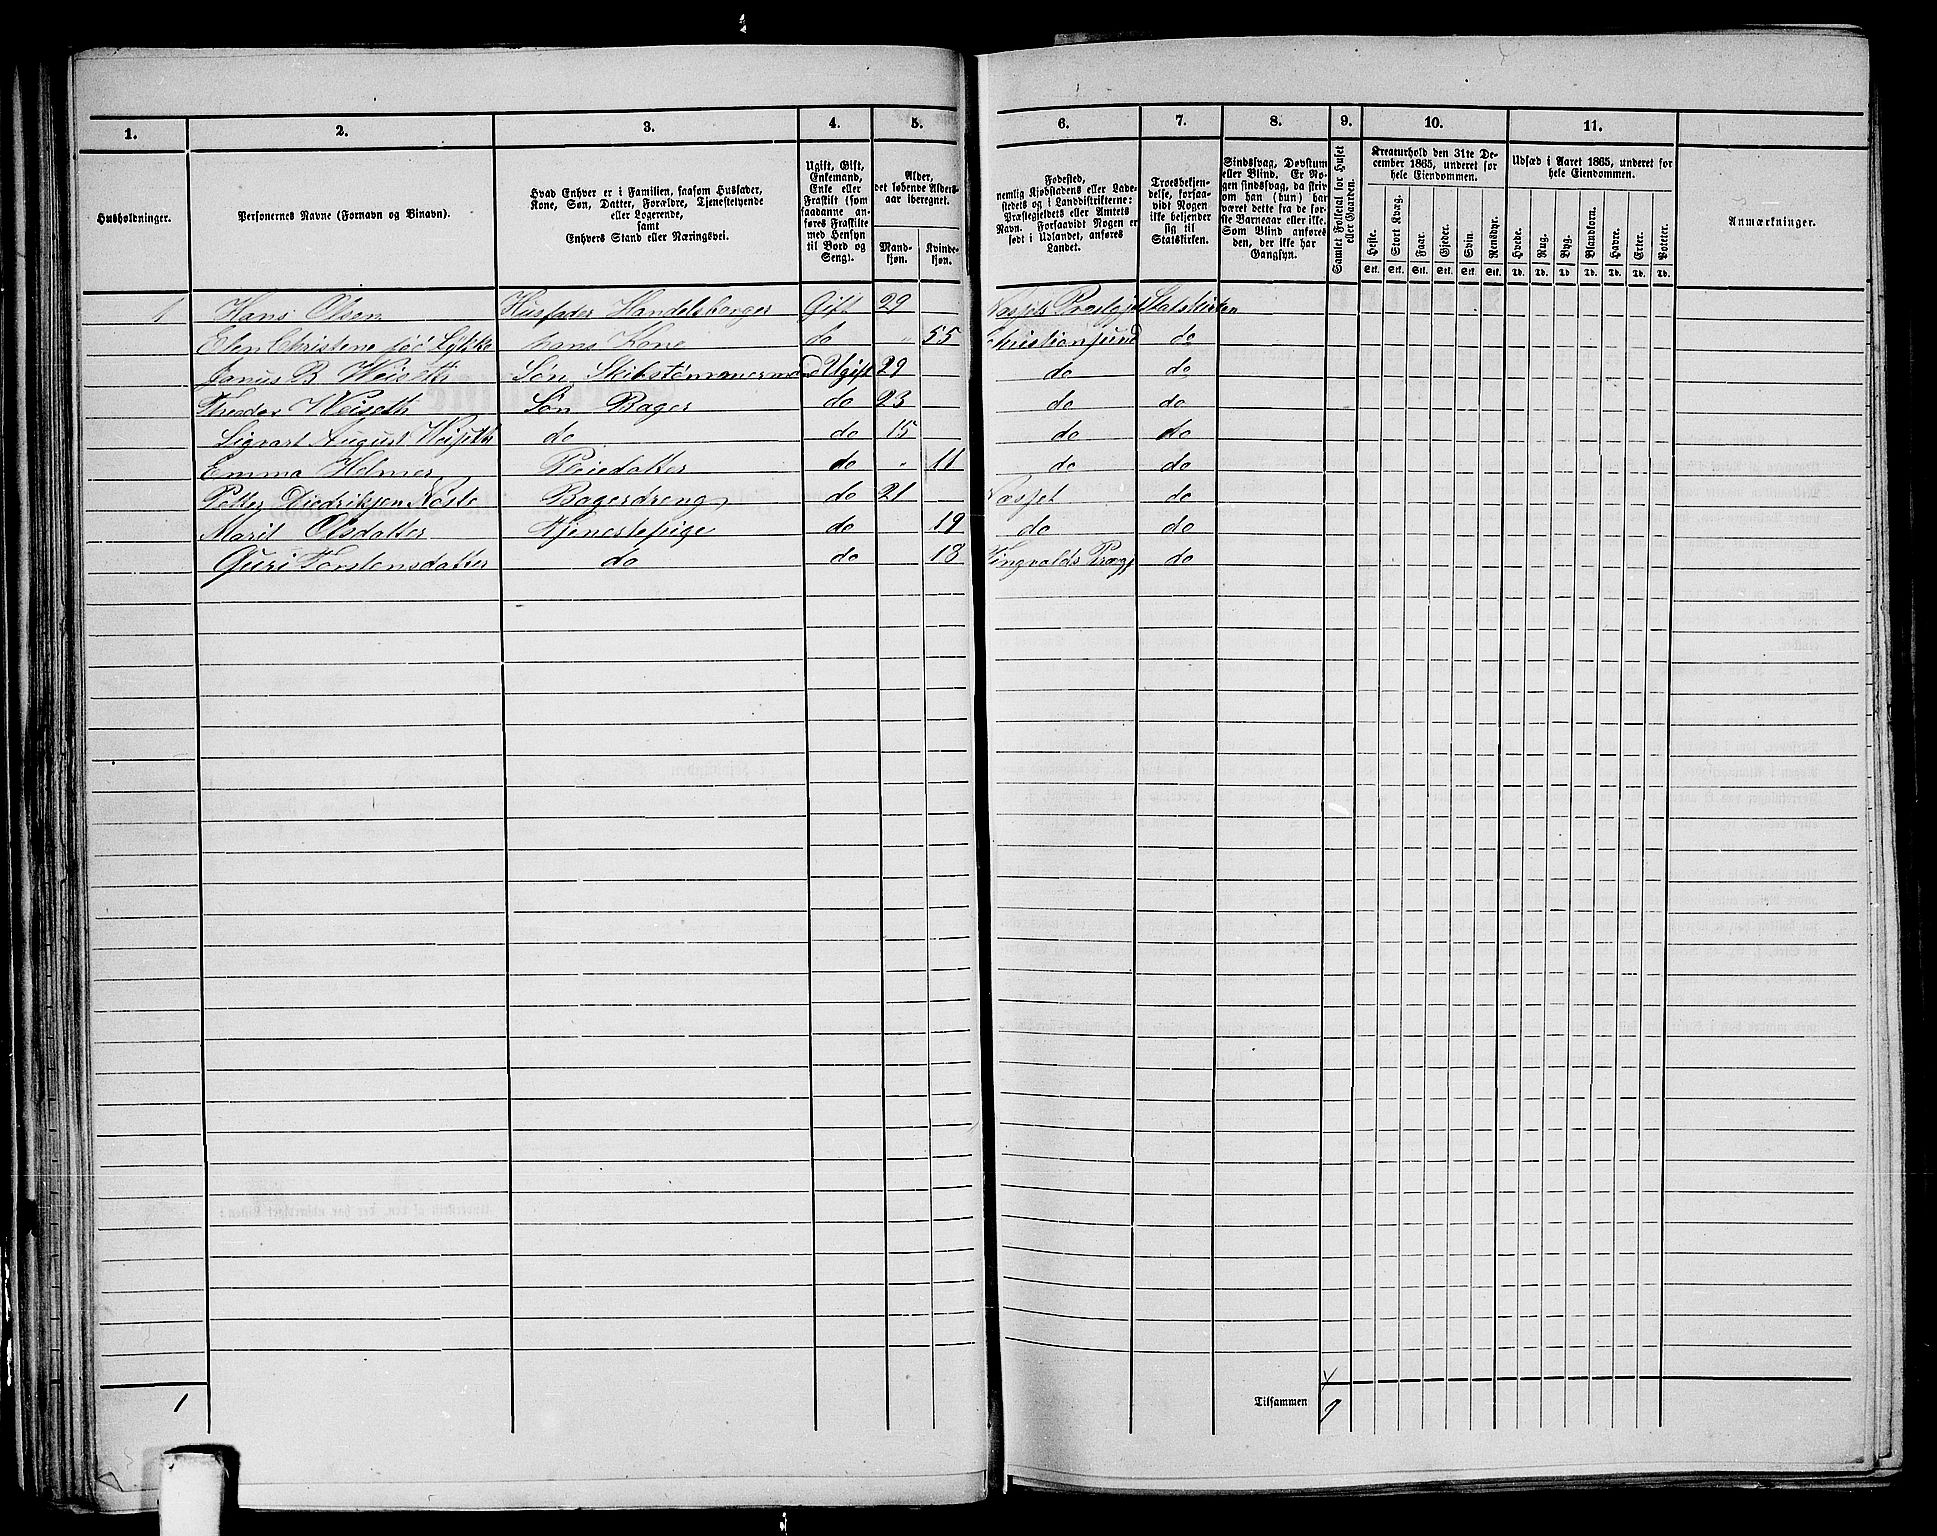 1. 2. 3. 4. 5. 6. 7. 8. 9. 10. 11.
Husholdninger.
Personernes Navne (Fornavn og Binavn).
Hvad Enhver er i Familien, saasom Husfader, Kone, Søn, Datter, Forældre, Tjenestetyende eller Logerende, samt Enhvers Stand eller Næringsvei.
Ugift, Gift, Enkemand, Enke eller Fraskilt (som saadanne anføres Fraskilte med Hensyn til Bord og Seng).
Alder, det løbende Alders-aar iberegnet.
Mand-kjøn. Kvinde-kjøn.
Fødested, nemlig Kjøbstadens eller Ladestedets og i Landdistrikterne: Præstegjeldets eller Amtets Navn. Forsaavidt Nogen er født i Udlandet, anføres Landet.
Troesbekjendelse, forsaavidt Nogen ikke bekjender sig til Statskirken.
Sindssvag, Døvstum eller Blind. Er Nogen sindssvag, da skrives om han (hun) har været dette fra de første Barneaar eller ikke. Som Blind anføres den, der ikke har Gangsyn.
Samlet Folketal for Huset eller Gaarden.
Kreaturhold den 31te December 1865, underet for hele Eiendommen.
Heste. Stort Kvæg. Faar. Gjeder. Svin. Rensdyr.
Stk. Stk. Stk. Stk. Stk. Stk.
Udsæd i Aaret 1865, underet for hele Eiendommen.
Hvede. Rug. Byg. Blandkorn. Havre. Erter. Poteter.
Td. Td. Td. Td. Td. Td. Td.
Anmærkninger.
1 Hans Olsen Husfader Handelsborger Gift 29 Statskirken
Elen Christene hans Kone do " 55 Christiansund do
Janus B Weiseth Søn Skibstømmermand Ugift 29 do do
Theodor Weiseth Søn Bager do 23 do do
Sigvart August Weiseth do do 15 do do
Emma Holmer Pleiedatter do " 11 do do
Petter Diedriksen Bagerdreng do 21 do
Marit Olsdatter Tjenestepige do 19 do do
Guri Torstensdatter do do 18 Tingvolds Præsgj do
1
Tilsammen 9